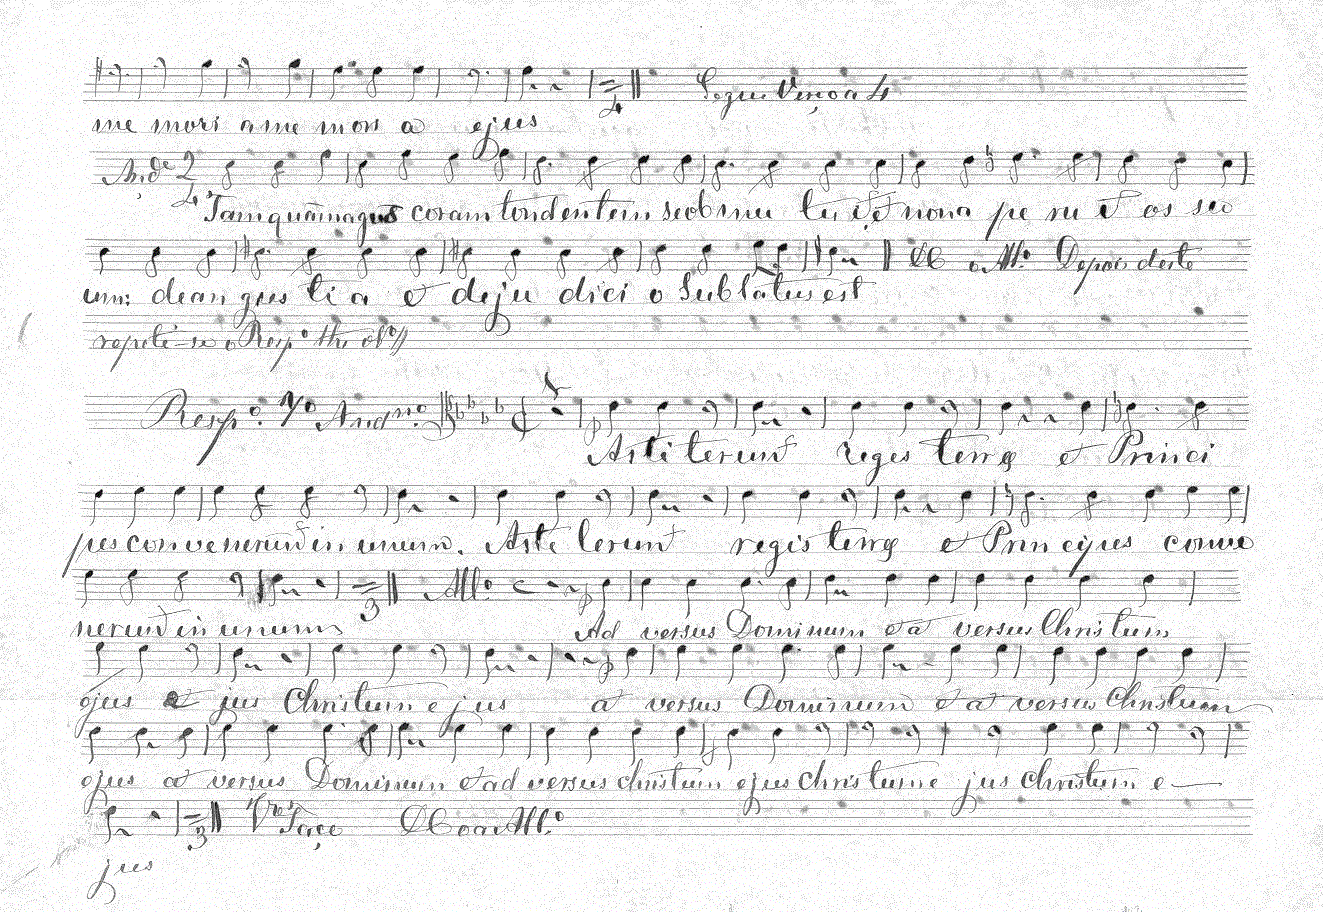 Segue Verso a 4
me mori a me mori a ejus
And.e 2 4
Tamquam agnus coram tondentem se obmu tu it et non a pe ru it os su
um: de an gus ti a et de ju dici o Sublatus est
DC o All.o Depois deste
repete-se o Resp.o
Resp.o 7.o And.no
Asti terunt reges terrę et Princi
pes convenerunt in unum. Asti terunt reges terrę et Principes conve
All.o C
nerunt in unum Ad versus Dominum et a versus Christum
3
ejus et jus Christum e jus a versus Dominum et a versus Christum
ejus a versus Dominum et ad versus christum ejus christum e jus christum e
3 V.e Tace DC o a All.o
jus